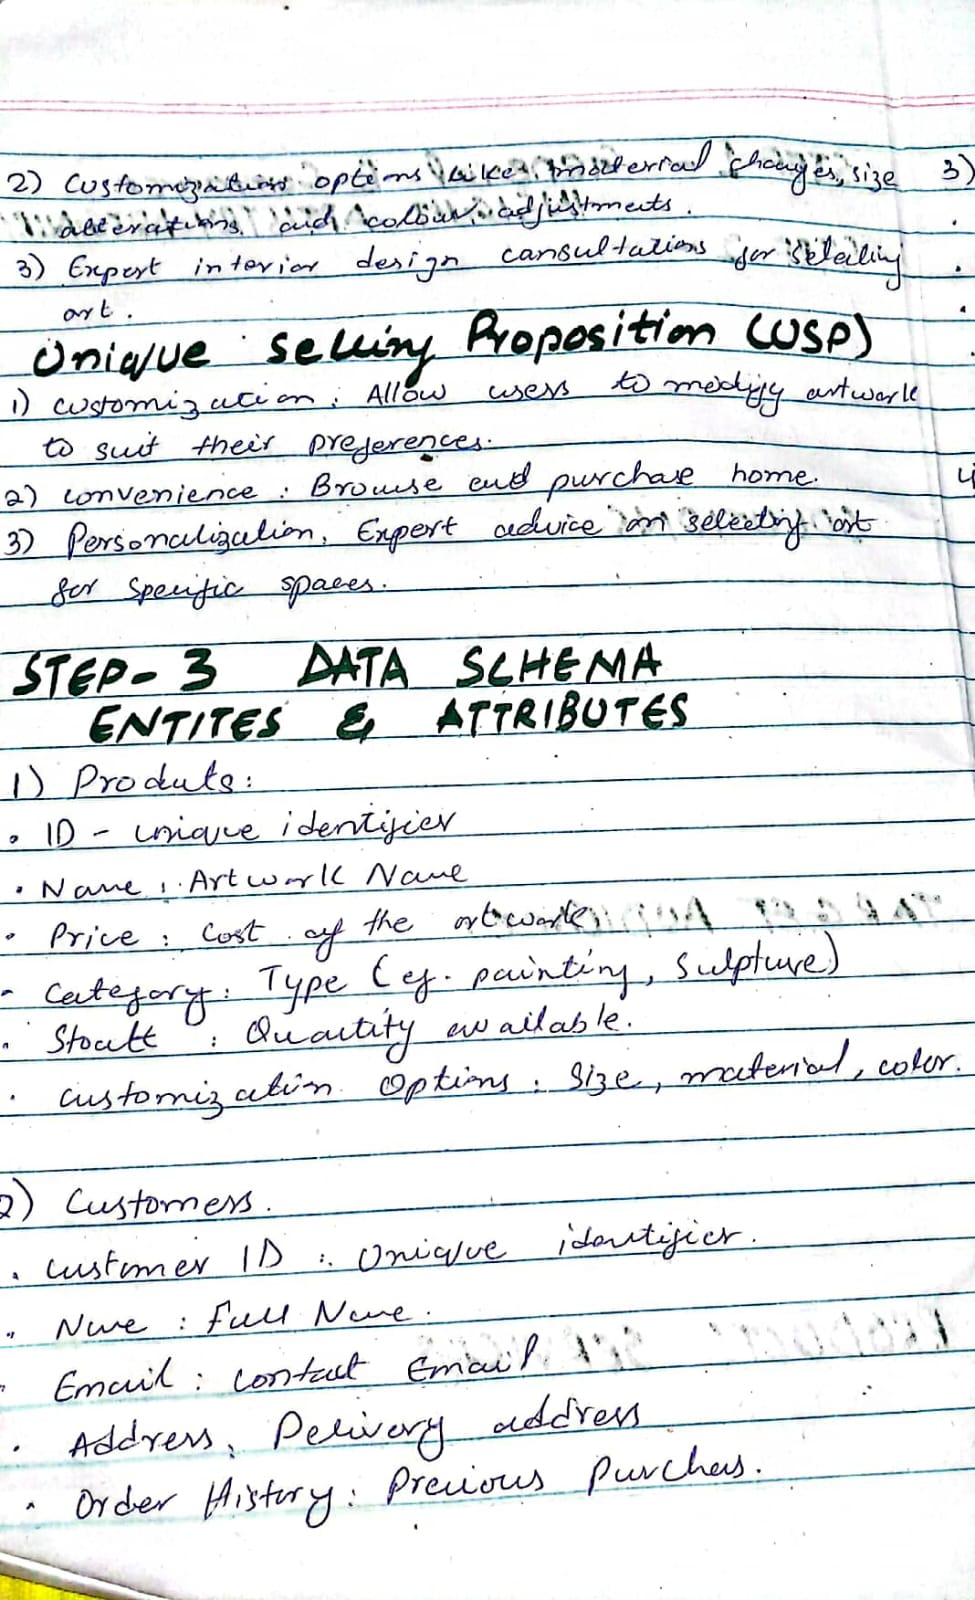 2) Customization options like material changes, size
alterations, and colour adjustments.
3) Expert interior design consultations for selecting
art.
Unique Selling Proposition (USP)
1) customization: Allow users to modify artwork
to suit their preferences.
2) convenience: Browse and purchase home.
3) Personalization, Expert advice on selecting art
for specific spaces.
STEP-3 DATA SCHEMA
ENTITES & ATTRIBUTES
1) Produts:
• ID - unique identifier
• Name: Artwork Name
• Price: Cost of the artwork
- Category: Type (eg. painting, Sulpture)
• Stock : Quantity available.
• customization Options: Size, material, color.
2) Customers.
• customer ID : Unique identifier.
• Name : Full Name.
- Email : contact Email
• Address, Delivery address
• Order History: Previous Purchas.
3)
4